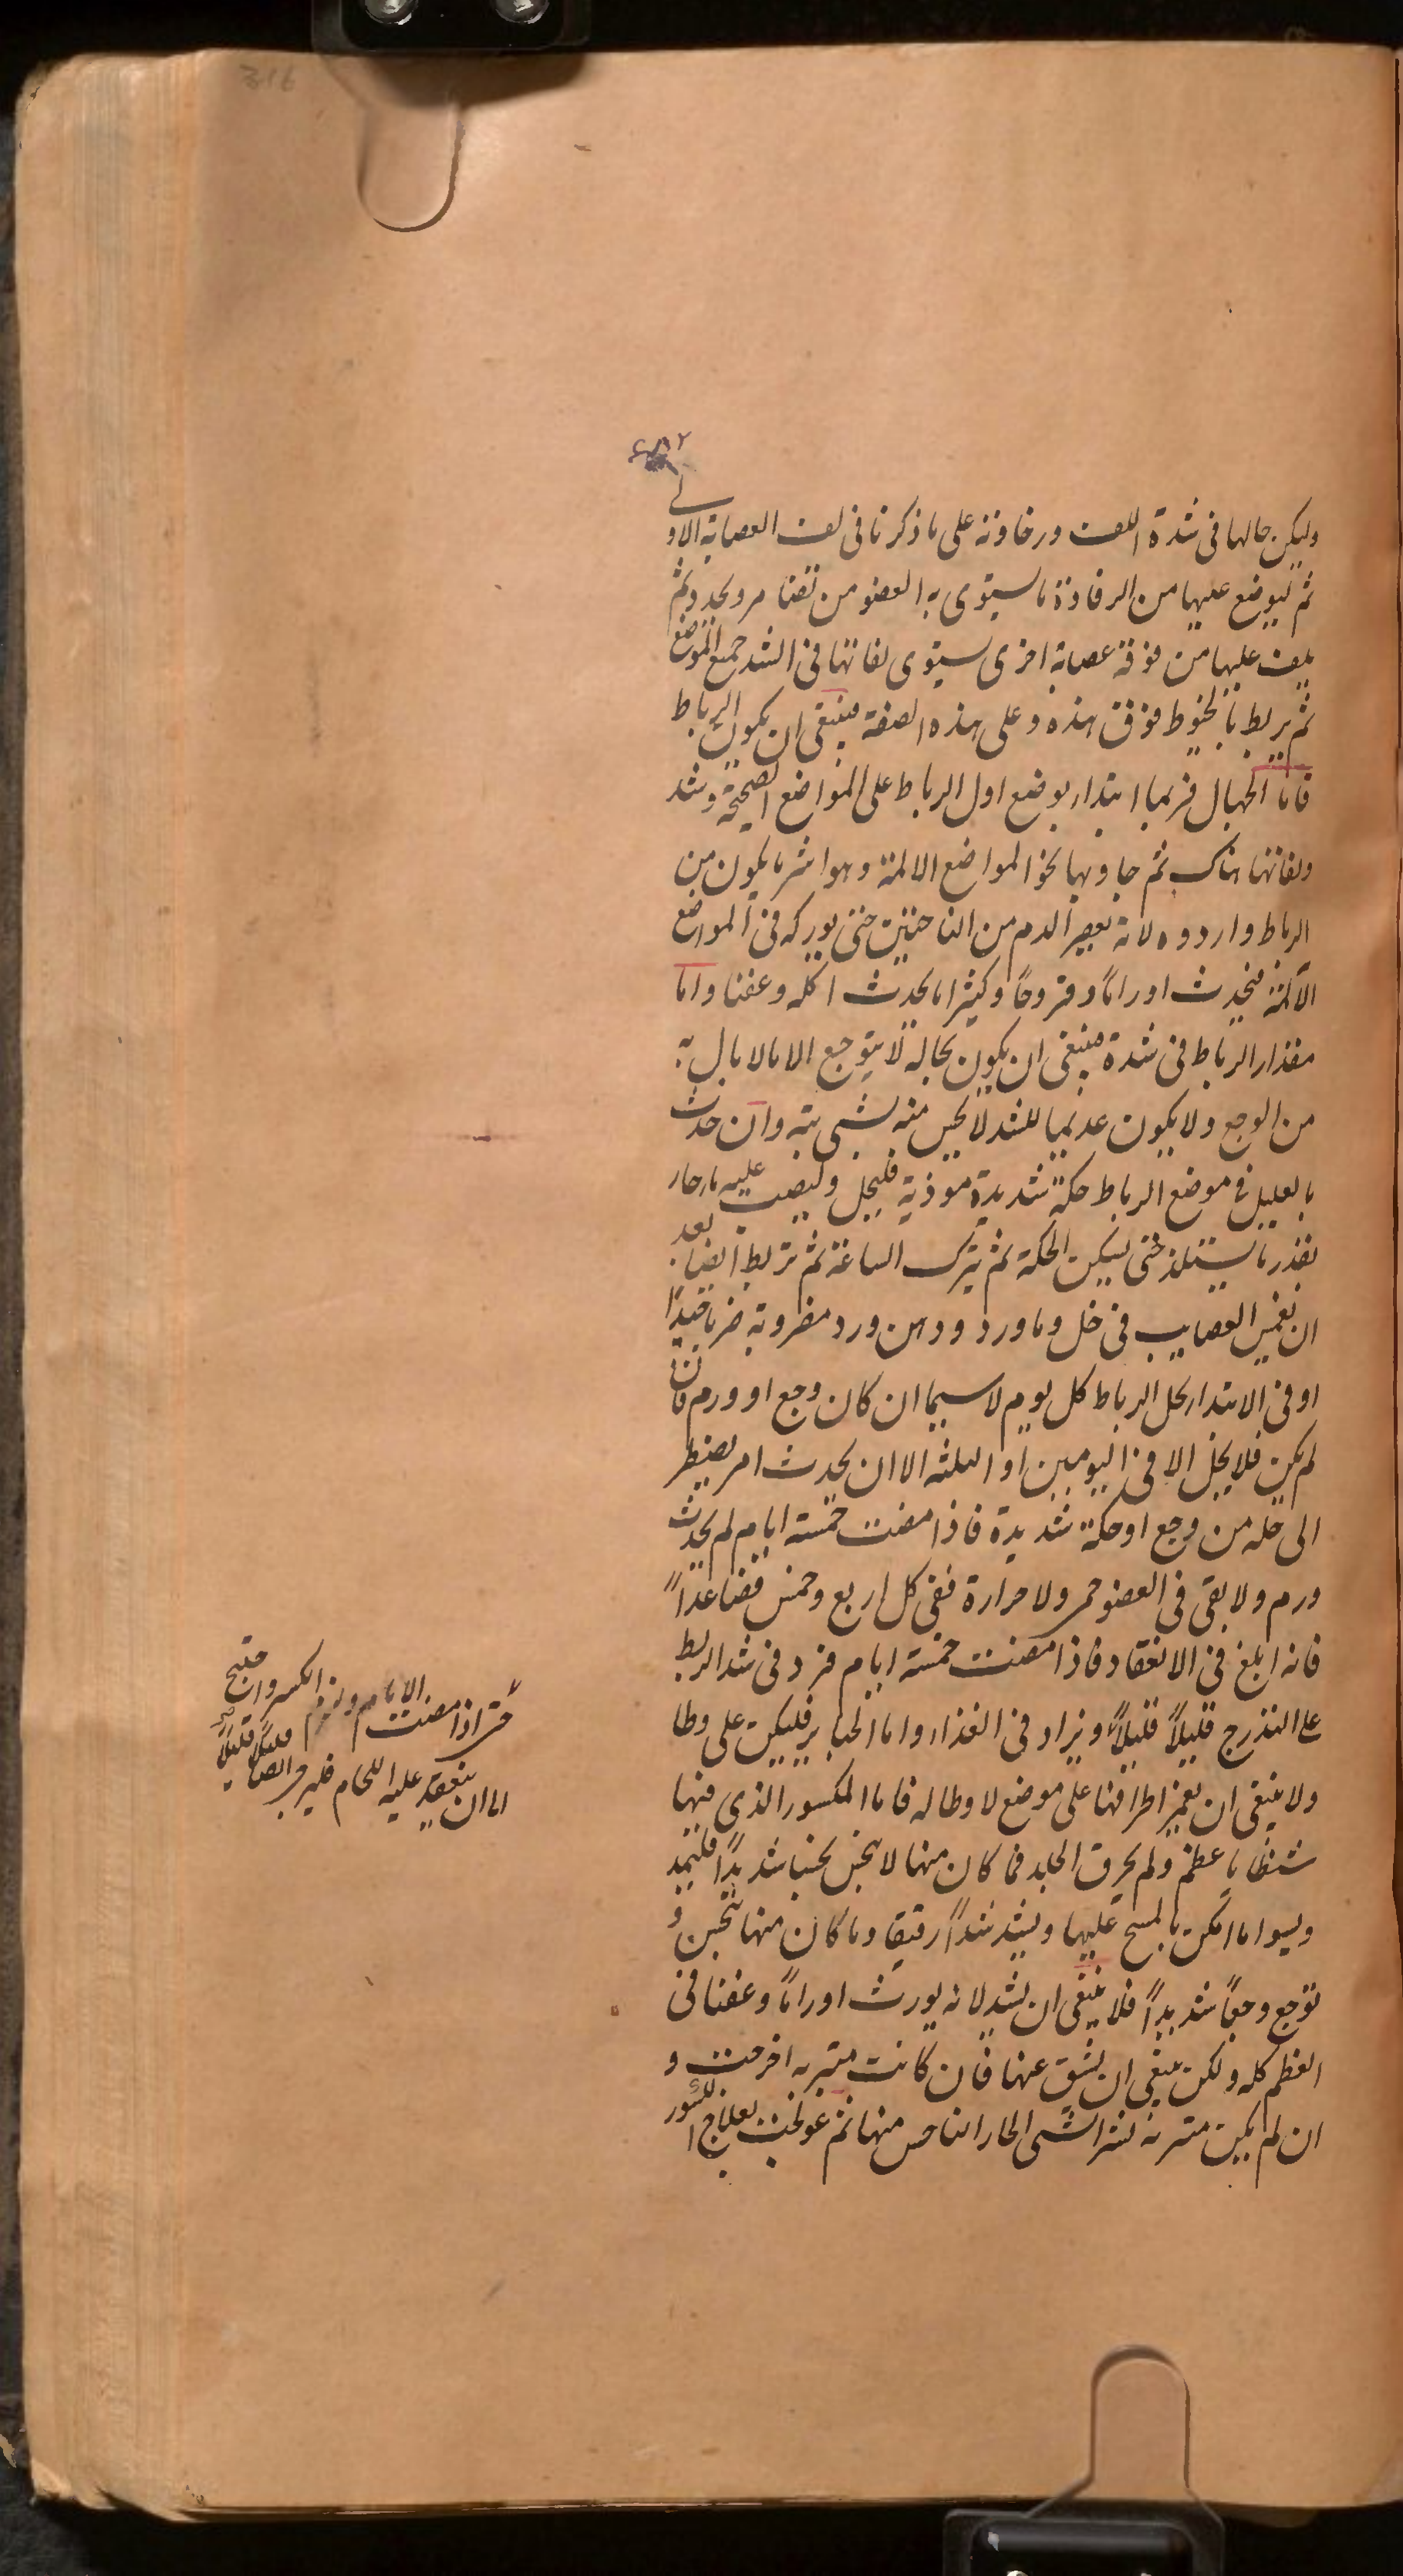 وليكن حالها فى شدة اللف ورخاوته على ما ذكرنا فى لف العصابة الاولى
ثم ليوضع عليها من الرفادة ما يستوى به العضو من ثقنا مرو يحدد ثم
يلف عليها من فوقه عصابة اخرى يستوى لفاتها فى الشد جميع الموضع
ثم يربط بالخيوط فوق هذه وعلى هذه الصفة ينبغى ان يكون الرباط
فاما الجهال فربما ابتداء بوضع اول الرباط على المواضع الصحيحة وشد
ولفاتها هناك ثم جاوبها نحو المواضع الالمة وهو اشر ما يكون من
الرباط واردوه لانه يعصر الدم من الناحيتين حتى يوركه فى المواضع
الآلمة فيحدث اوراما وقروحا وكثيرا ما يحدث اكله وعفنا واما
مقدار الرباط فى شدة فينبغى ان يكون بحاله لا يتوجع الا ما لا بال به
من الوجع ولا يكون عديما للشد لا يحس منه بشى بته وان حدث
بالعليل فى موضع الرباط حكة شديدة موذية فليحل وليصب عليه ماء حار
بقدر ما يستلذ حتى يسكن الحكة ثم يترك الساعة ثم تربط ايضا بعد
ان يغمس العصايب فى خل وماورد ودهن ورد مضروبة ضربا جيدا
او فى الابتداء يحل الرباط كل يوم لا سيما ان كان وجع او ورم فان
لم يكن فلا يحل الا فى اليومين او الثلثه الا ان يحدث امر يضطر
الى حله من وجع او حكة شديدة فاذا مضت خمسة ايام لم يحدث
ورم ولا بقى فى العضو حمر ولا حرارة ففى كل اربع وخمس فصاعداً
فانه ابلغ فى الانعقاد فاذا مضت خمسة ايام فزد فى شد الربط
على التدرج قليلاً قليلاً ويزاد فى الغذاء واما الجباير فليكن على وطا
ولا ينبغى ان يغمز اطرافها على موضع لا وطا له فاما المكسور الذى فيها
شظايا عظم ولم يخرق الجلد فما كان منها لا ينخس نخسا شديدا فليمد
ويسوا ما امكن بالمسح عليها ويشد شداً رقيقا وما كان منها ينخس و
توجع وجعاً شديداً فلا ينبغى ان يشد لانه يورث اوراماً وعفنا فى
العظم كله ولكن ينبغى ان يشق عنها فان كانت متبريه اخرجت و
ان لم يكن متبريه نشر الشى الحار الناخس منها ثم عولجت بعلاج الكسور
حتى اذا مضت الايام ولزم الكسر واحتج
الى ان ينعقد عليه اللحام فليرخ ايضا قليلا قليلاً